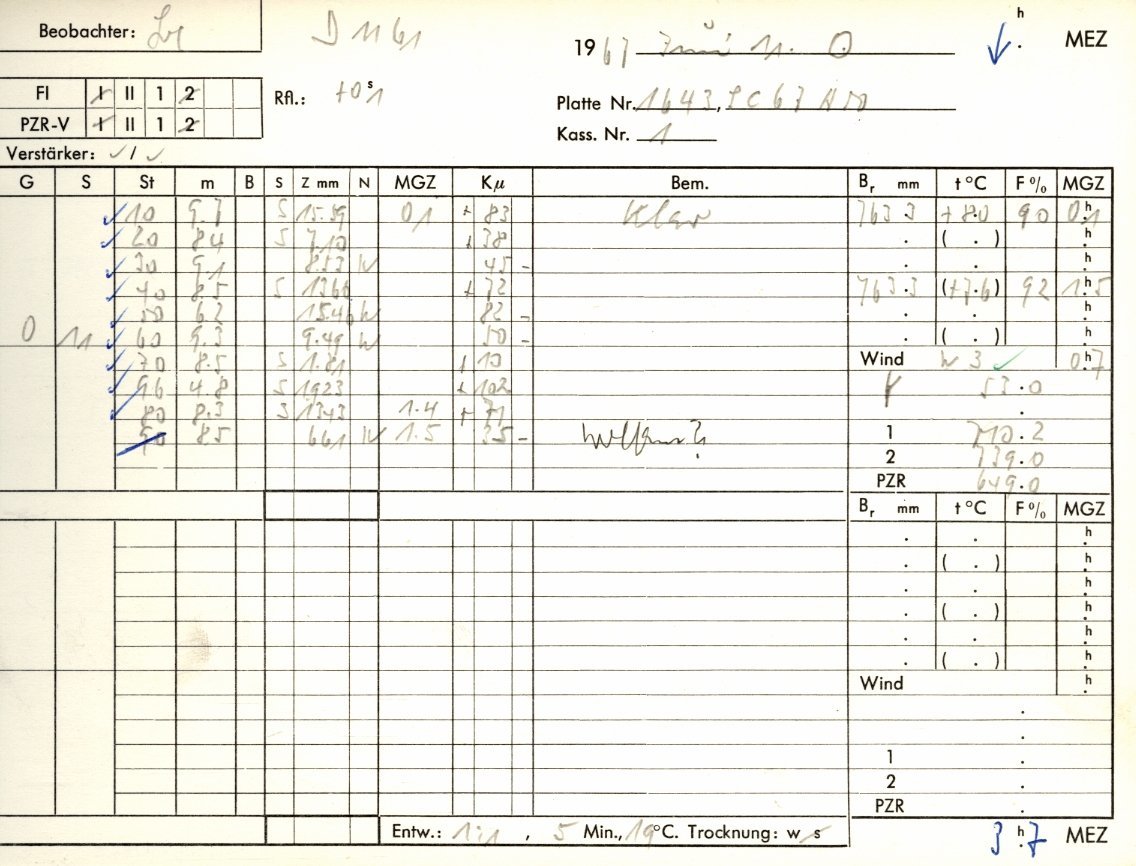 Beobachter:
D 1161
1967 Juni 11. O
h . MEZ
FI I II 1 2
PZR-V I II 1 2
Rfl.: +0s1
Platte Nr. 1643,
Kass. Nr. 1
Verstärker: ✓/✓
G S St m B S Z mm N MGZ Kμ Bem. Br mm t °C F % MGZ
10 9.7 S 15.59 01 + 83 klar 763.3 +8.0 90 0.1 h
20 8.4 S 7.10 + 38 . ( . ) h
30 9.1 8.53 N 45 - . . h
40 8.5 S 1360 + 72 763.3 (+7.6) 92 1.5 h
50 6.2 15.40 N 82 - . . h
0 11 60 9.3 9.49 N 50 - . ( . ) h
70 8.5 S 1.81 + 10 Wind W 3 ✓ 0.7 h
96 4.8 S 1923 + 102 53.0
80 8.3 S 1343 1.4 + 71 .
90 8.5 661 N 1.5 35 - 1 710.2
2 739.0
PZR 649.0
Br mm t °C F % MGZ
. . h
. ( . ) h
. . h
. ( . ) h
. . h
. ( . ) h
Wind h
.
.
1 .
2 .
PZR .
Entw.: 1:1 , 5 Min., 19°C. Trocknung: w s
3 h.7 MEZ